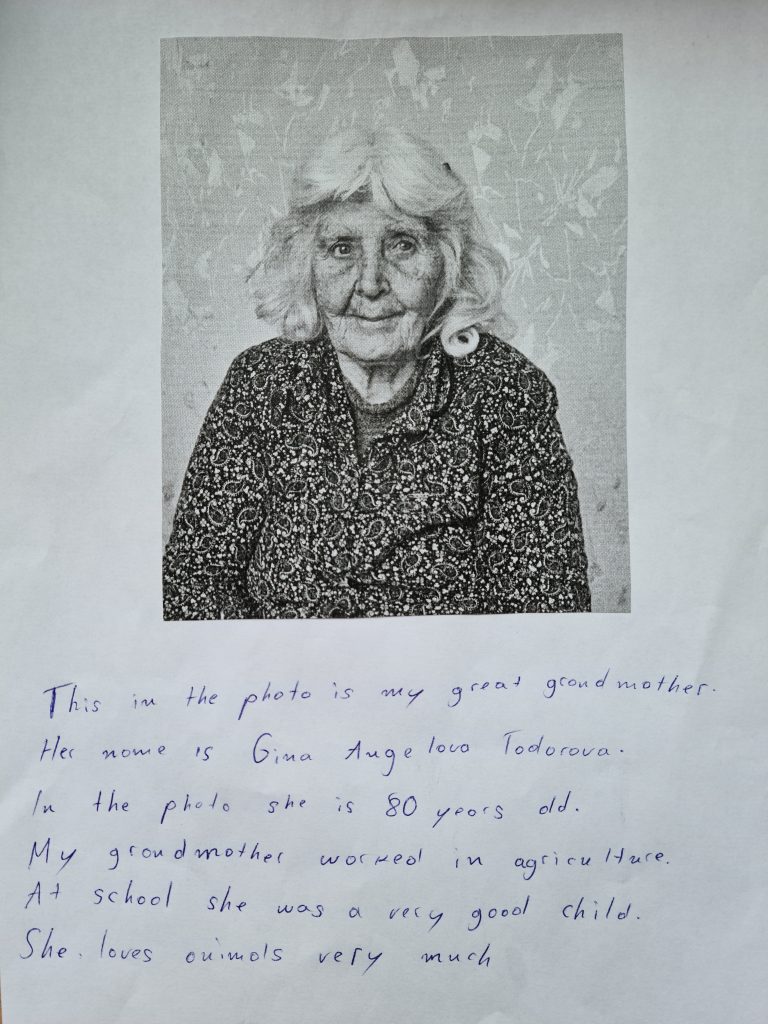 This in the photo is my great grandmother.
Her name is Gina Angelova Todorova.
In the photo she is 80 years old.
My grandmother worked in agriculture.
At school she was a very good child.
She loves animals very much